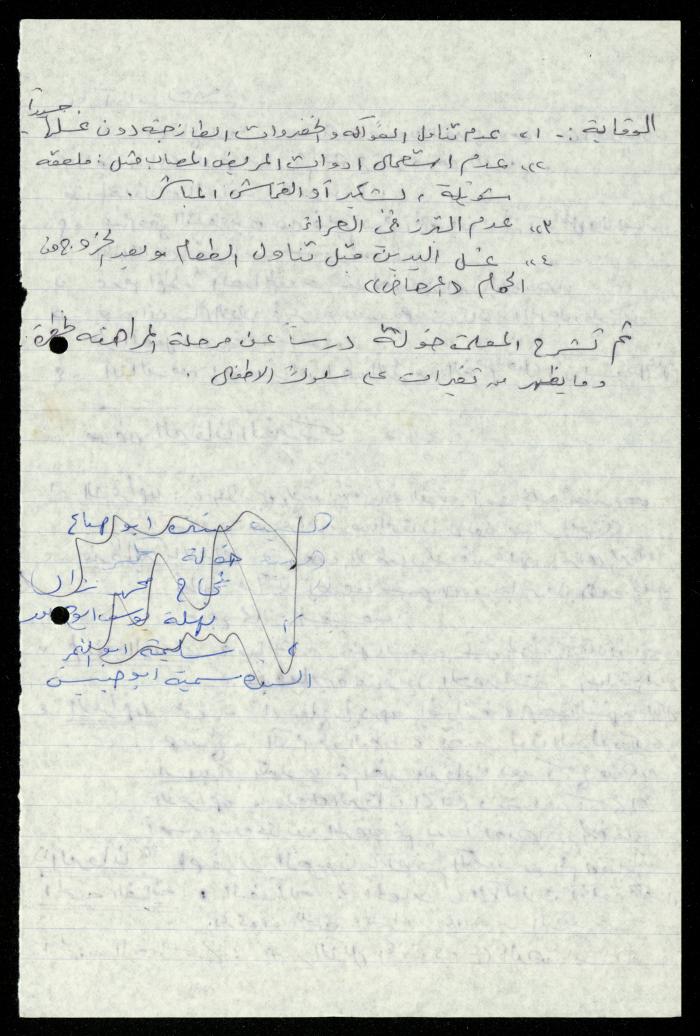 جيداً
الوقاية :- ١» عدم تناول الفواكه والخضروات الطازجة دون غسلها
٢» عدم استعمال ادوات المريض المصاب مثل : ملعقة
شوكية ، بشكير أو القماش المباشر .
٣» عدم التبرز في العراء .
٤» غسل اليدين قبل تناول الطعام وبعد الخروج من
الحمام «المرحاض»
ثم تشرح المعلمة خولة درساً عن مرحلة المراهقة
وما يظهر من تغيرات على سلوك الاطفال .
ابو صباع
خولة
نجاح
سليمة ابو
السيدة سمية ابو حبيش